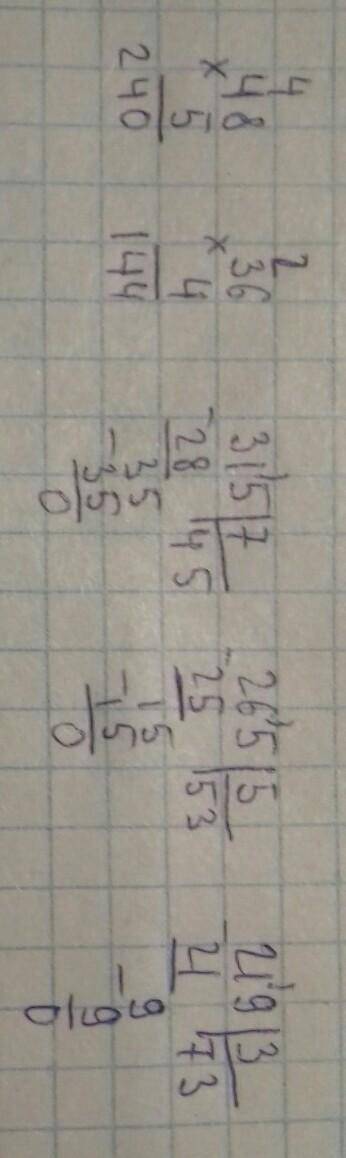 4 2
×48 ×36 315|7 265|5 219|3
5 4 -28 45 -25 53 -21 73
240 144 35 15 9
-35 -15 -9
0 0 0